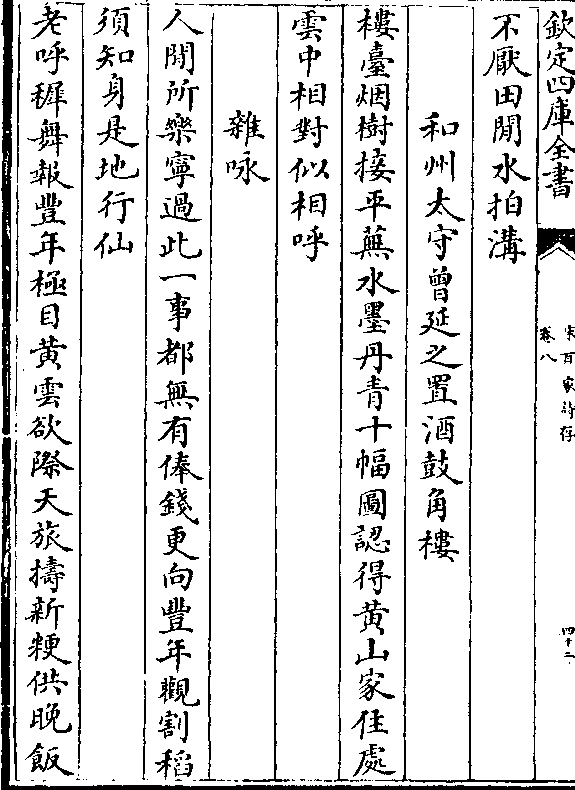 欽定四庫全書
宋百家詩存
卷八
四十二
不厭田間水拍溝
和州太守曾延之置酒鼓角樓
樓臺烟樹接平蕪水墨丹青十幅圖認得黄山家住處
雲中相對似相呼
雜咏
人間所樂寧過此一事都無有俸錢更向豐年觀割稻
須知身是地行仙
老呼穉舞報豐年極目黄雲欲際天旅擣新粳供晩飯